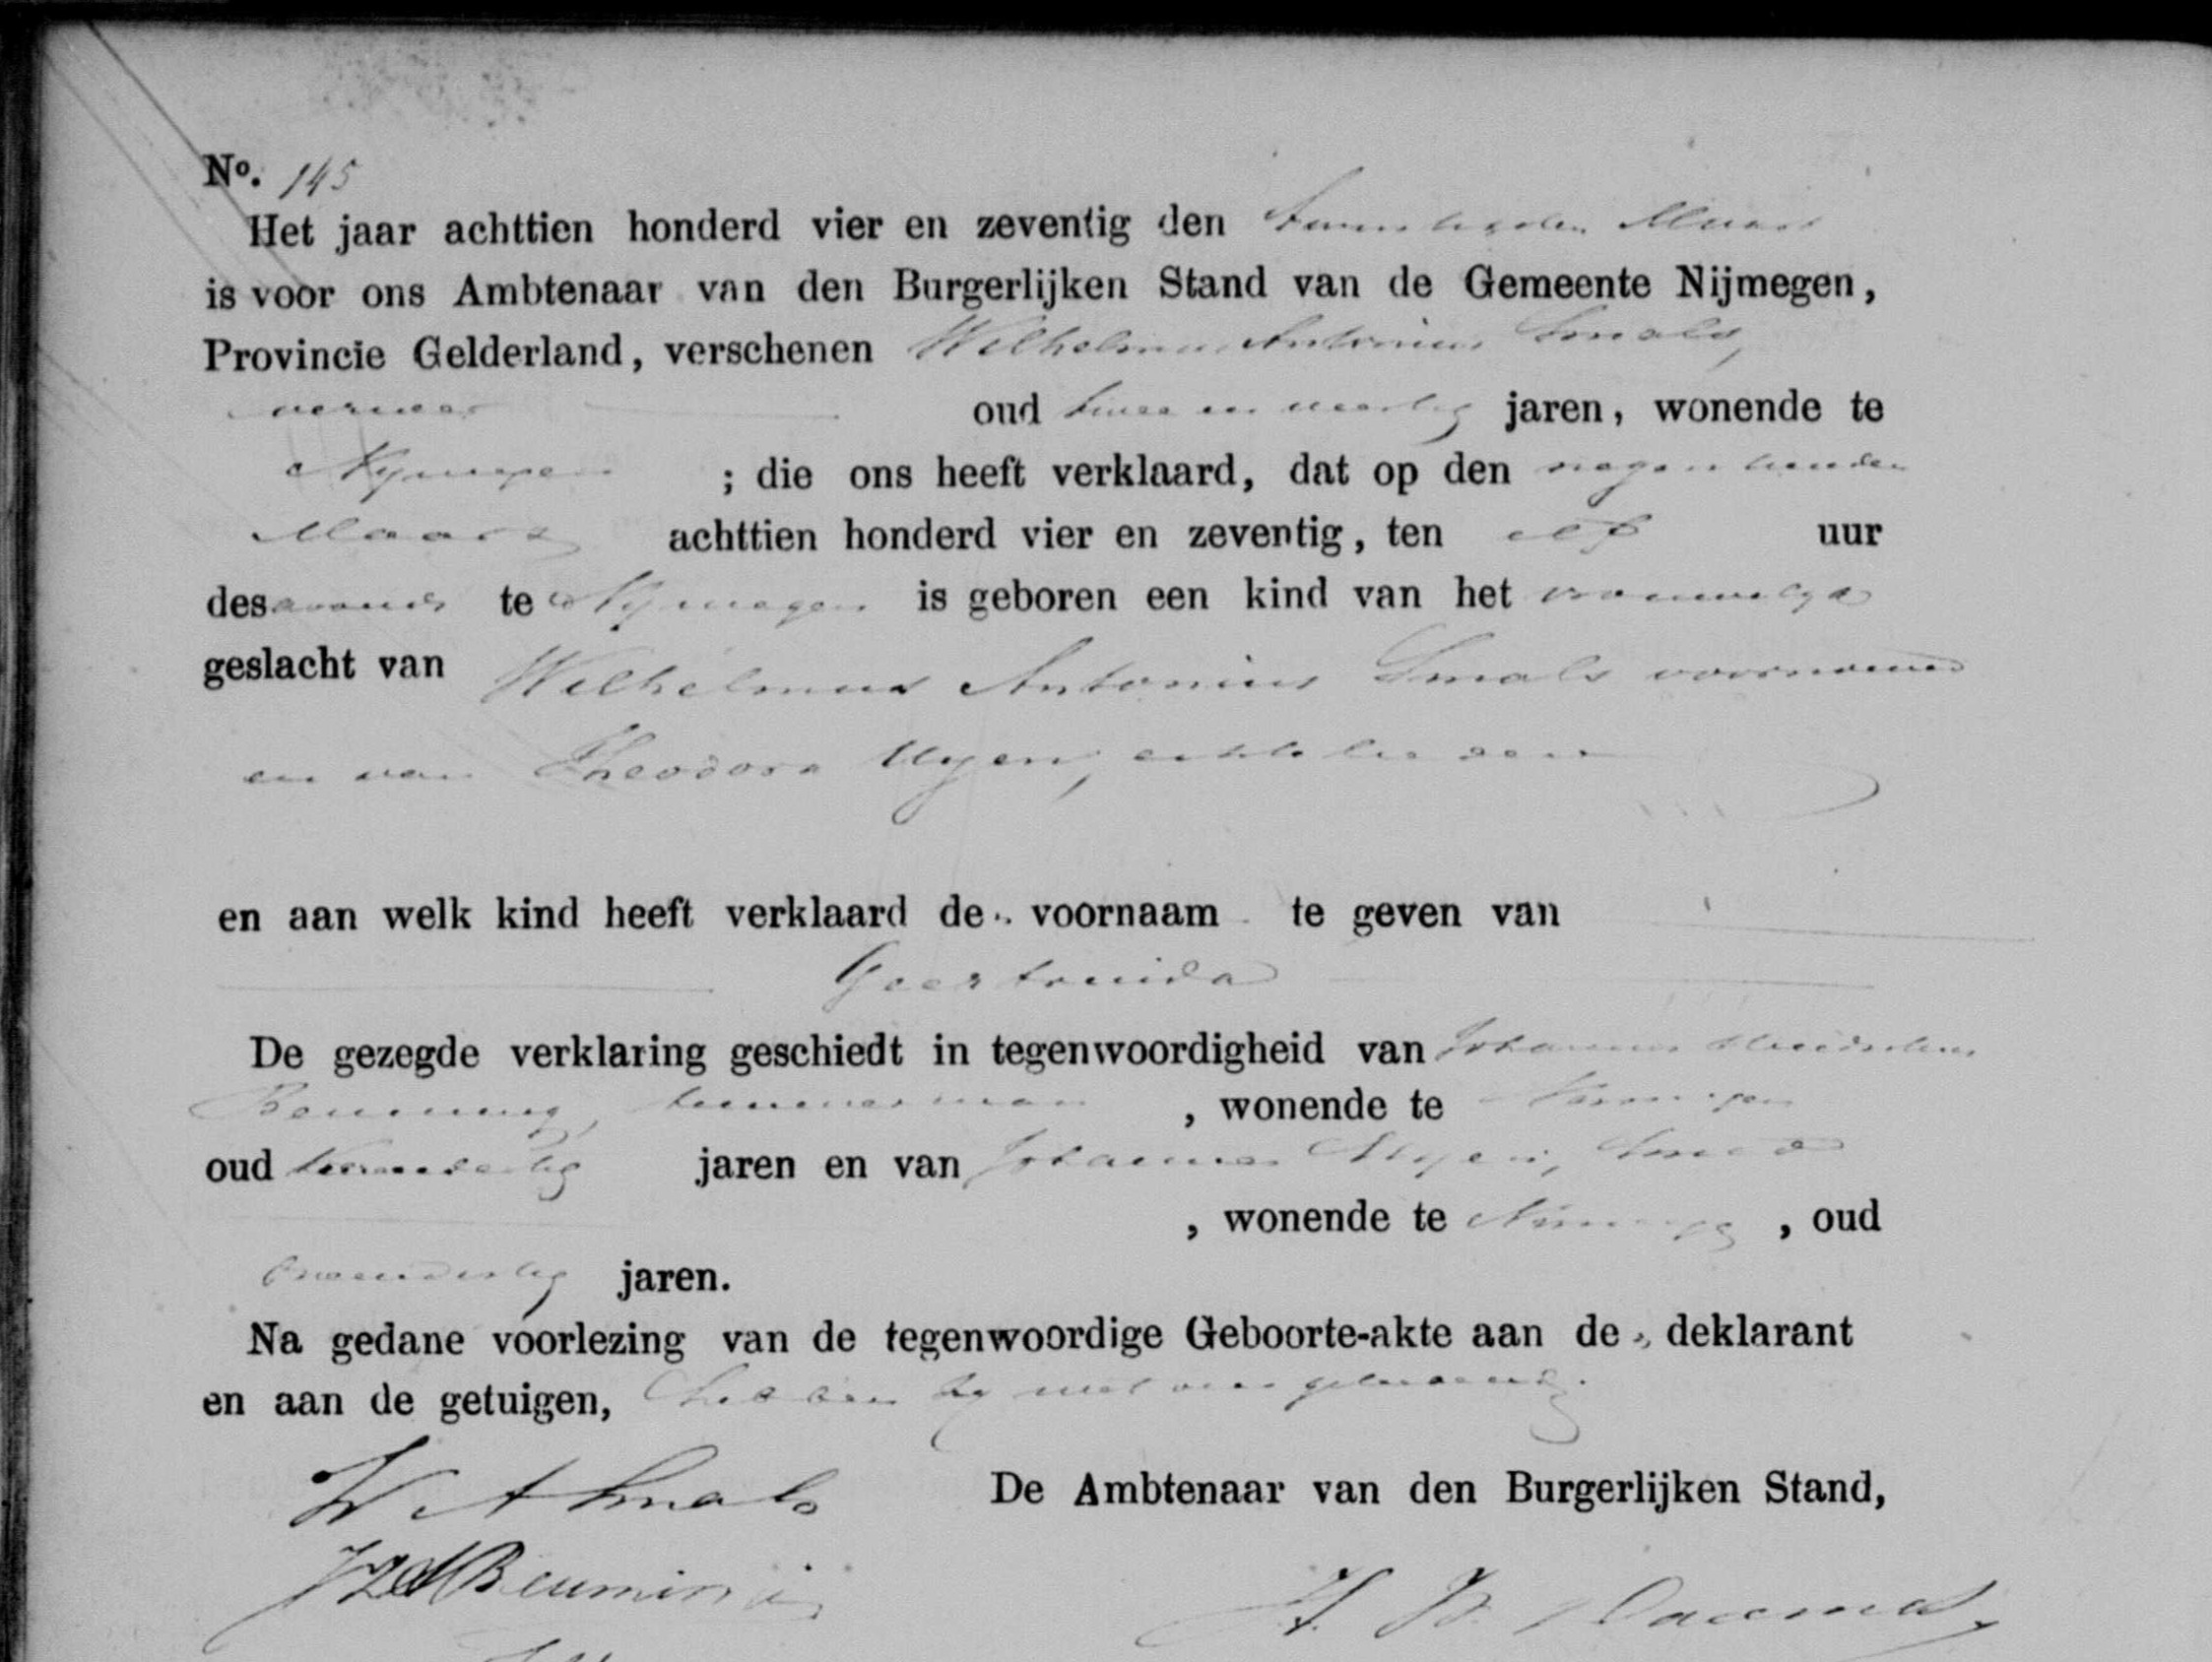 No. 145
Het jaar achttien honderd vier en zeventig den twintigsten Maart
is voor ons Ambtenaar van den Burgerlijken Stand van de Gemeente Nijmegen,
Provincie Gelderland, verschenen Wilhelmus Antonius Smals,
verwer oud twee en veertig jaren, wonende te
Nymegen ; die ons heeft verklaard, dat op den negentienden
Maart achttien honderd vier en zeventig, ten elf uur
des avonds te Nymegen is geboren een kind van het vrouwelyk
geslacht van Wilhelmus Antonius Smals voornoemd
en van Theodora Uyen, echtelieden
en aan welk kind heeft verklaard de voornaam te geven van
Geertruida
De gezegde verklaring geschiedt in tegenwoordigheid van Johannes
Beuming, timmerman , wonende te Nymegen
oud jaren en van Johannes Uyen, Smid
, wonende te Nymegen , oud
jaren.
Na gedane voorlezing van de tegenwoordige Geboorte-akte aan de deklarant
en aan de getuigen, hebben zy met ons geteekend.
W A Smals
De Ambtenaar van den Burgerlijken Stand,
Beuming